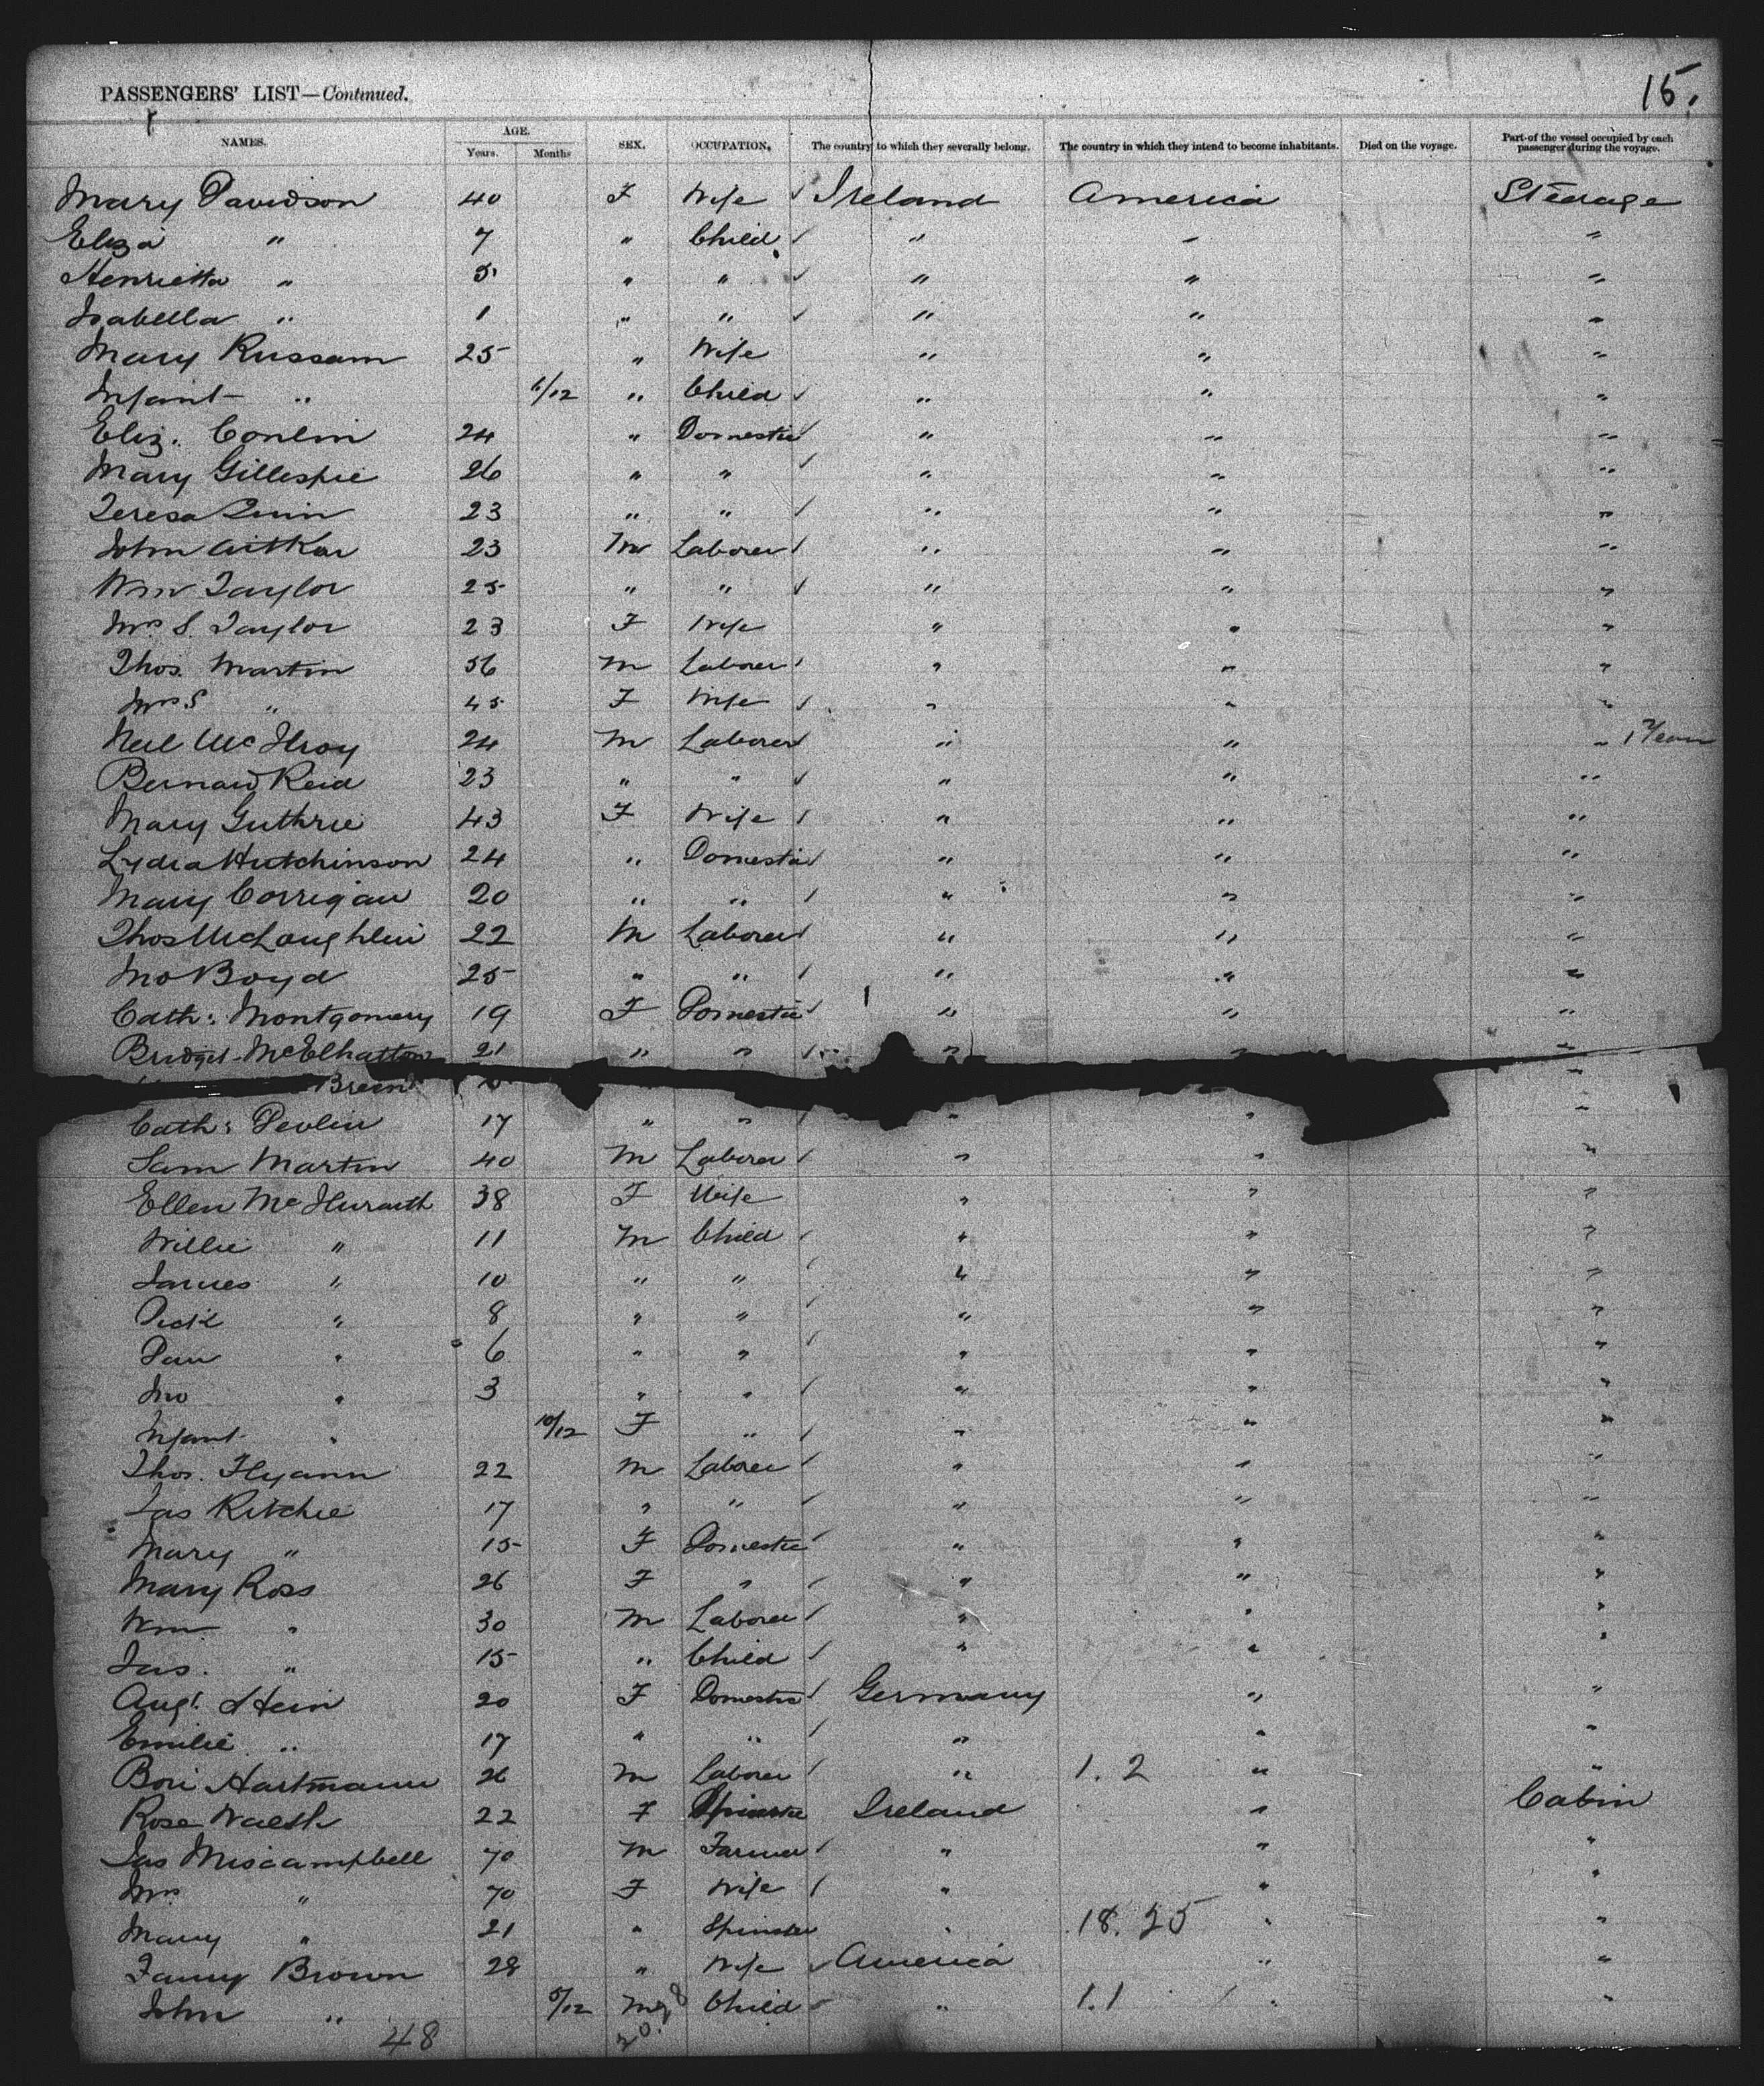 15.
PASSENGERS' LIST—Continued.
NAMES. AGE. Years. Months SEX. OCCUPATION. The country to which they severally belong. The country in which they intend to become inhabitants. Died on the voyage. Part of the vessel occupied by each passenger during the voyage.
Mary Davidson 40 F Wife Ireland America Steerage
Eliza " 7 " Child " " "
Henrietta " 5 " " " " "
Isabella " 1 " " " " "
Mary Russam 25 " Wife " " "
Infant " 6/12 " Child " " "
Eliz. Conlin 24 " Domestic " " "
Mary Gillespie 26 " " " " "
Teresa Quin 23 " " " " "
John Aitkar 23 M Laborer " " "
Wm Taylor 25 " " " " "
Mrs S. Taylor 23 F Wife " " "
Thos. Martin 56 M Laborer " " "
Mrs S " 45 F Wife " " "
Neil McIlroy 24 M Laborer " " "
Bernard Reid 23 " " " " "
Mary Guthrie 43 F Wife " " "
Lydia Hutchinson 24 " Domestic " " "
Mary Corrigan 20 " " " " "
Thos McLaughlin 22 M Laborer " " "
Jno Boyd 25 " " " " "
Cath: Montgomery 19 F Domestic " " "
Bridget McElhatton 21 " " " " "
Breen "
Cath: Devlin 17 " " " " "
Sam Martin 40 M Laborer " " "
Ellen McIlwraith 38 F Wife " " "
Willie " 11 M Child " " "
James " 10 " " " " "
Dick " 8 " " " " "
Dan " 6 " " " " "
Jno " 3 " " " " "
Infant " 10/12 F " " " "
Thos. Flyann 22 M Laborer " " "
Jas Ritchie 17 " " " " "
Mary " 15 F Domestic " " "
Mary Ross 26 F " " " "
Wm " 30 M Laborer " " "
Jas. " 15 " Child " " "
Augt. Stein 20 F Domestic Germany " "
Emilie " 17 " " " " "
Bori Hartmann 26 M Laborer " 1. 2 " "
Rose Walsh 22 F Spinster Ireland " Cabin
Jas Miscampbell 70 M Farmer " " "
Mrs " 70 F Wife " " "
Mary " 21 " Spinster " 18. 25 " "
Fanny Brown 28 " Wife America " "
John " 5/12 M Child " 1.1 " "
48